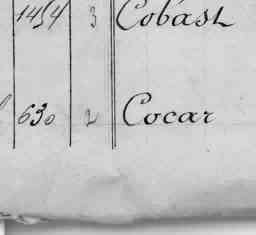 1454 3 Cobast
630 2 Cocar